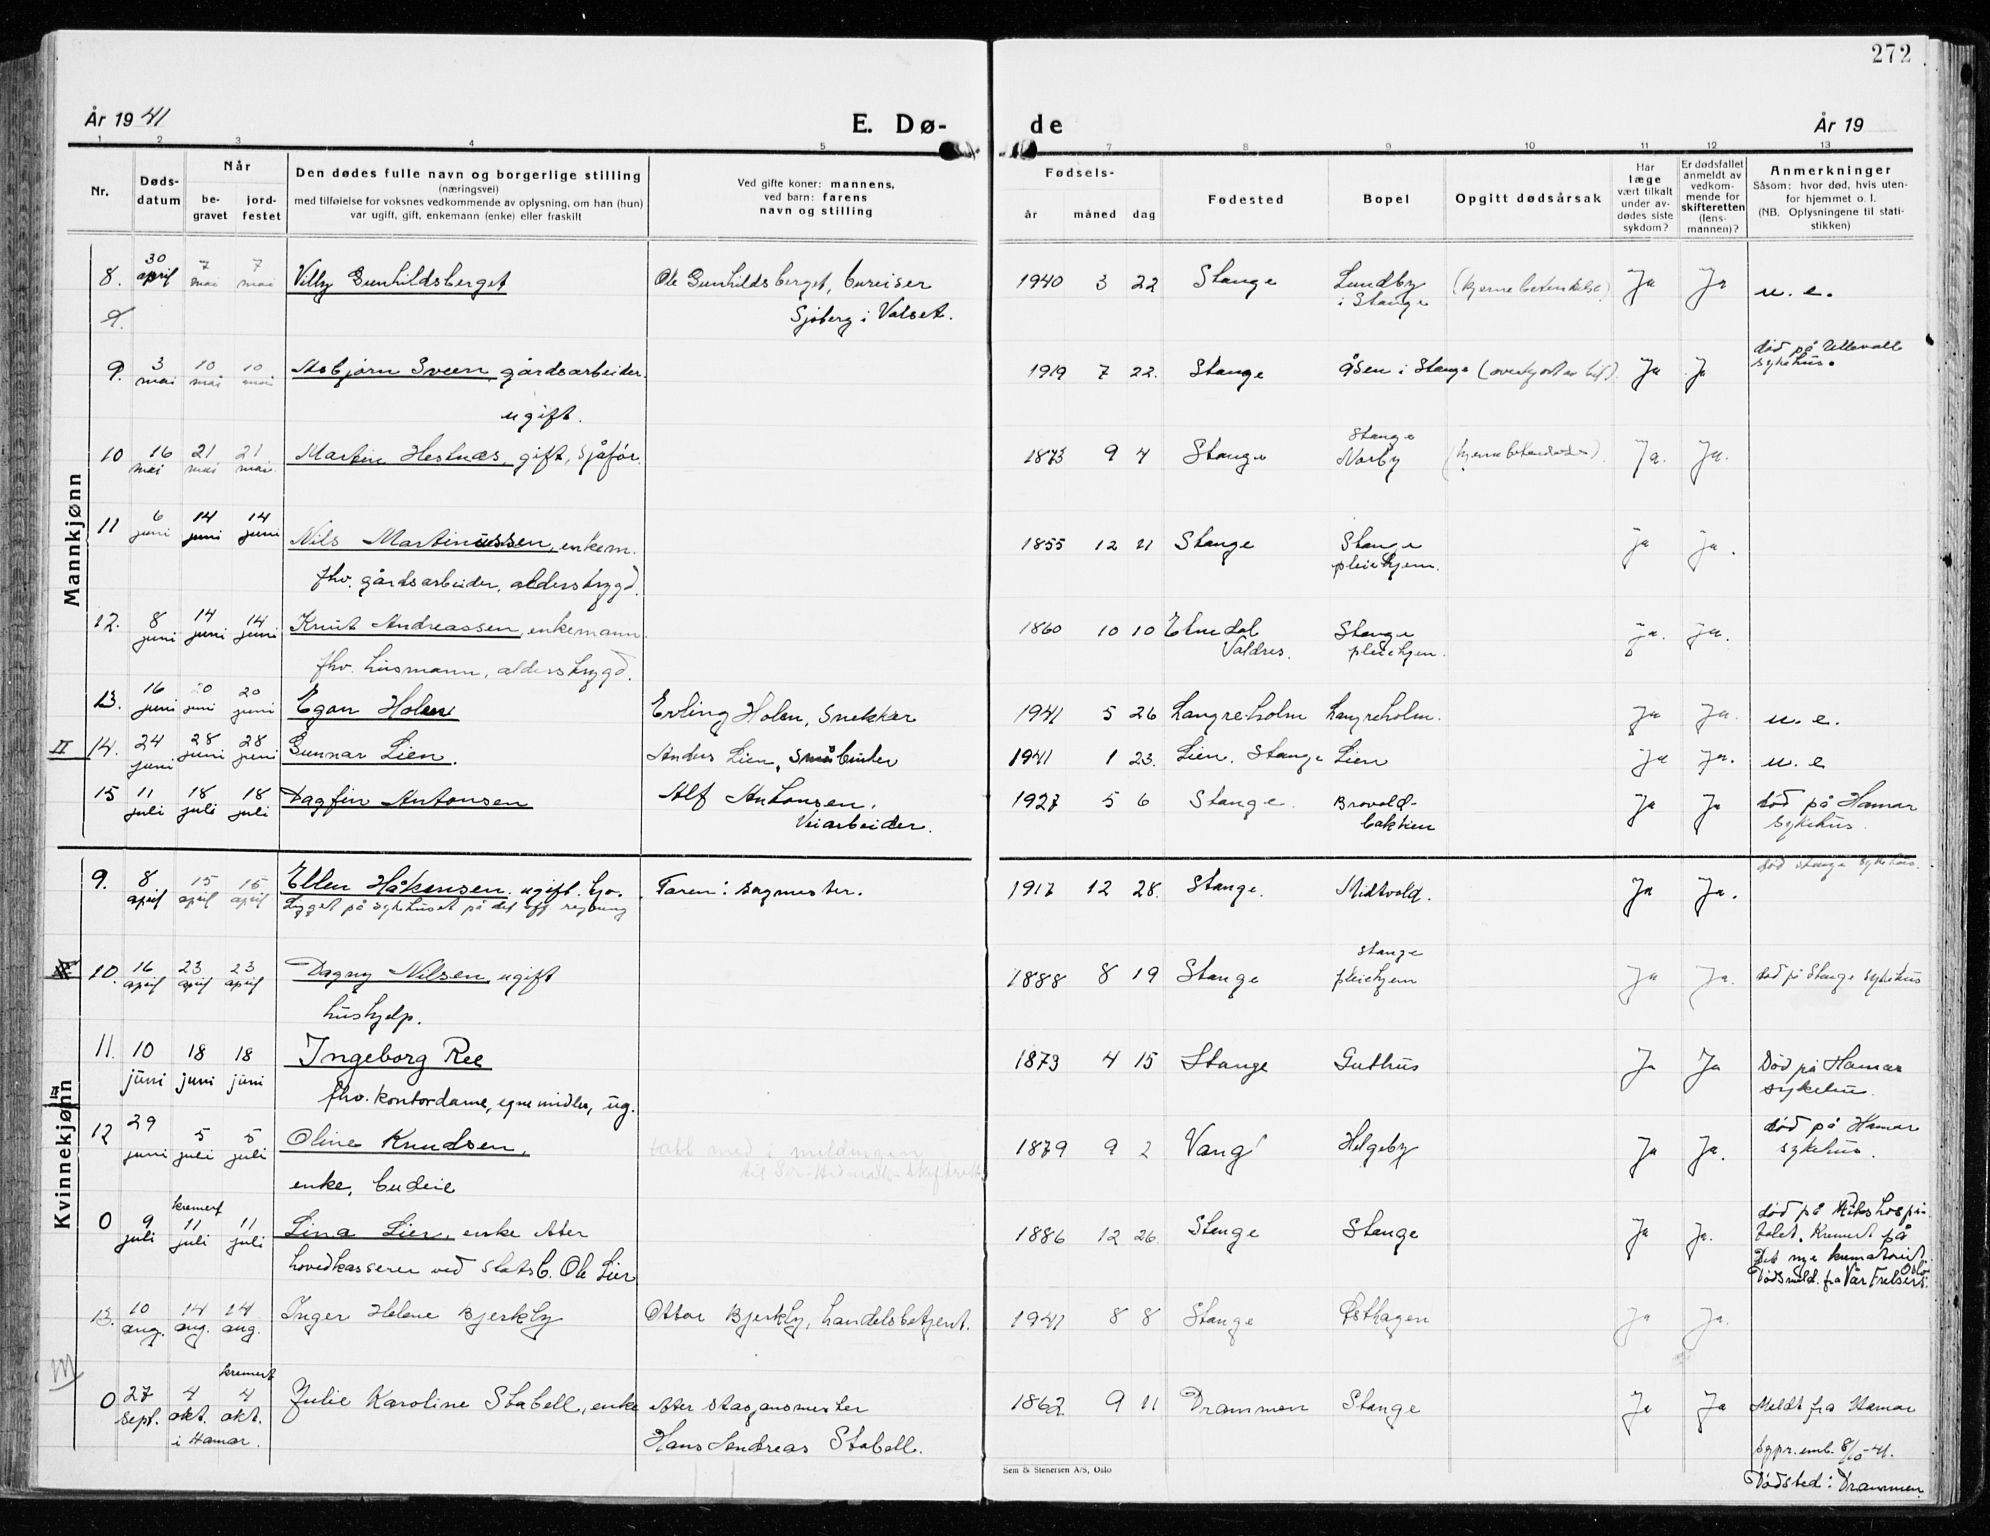 272
År 1941
E. Dø-
de
År 19
1 2 3 4 5 7 8 9 10 11 12 13
Nr.
Døds-
datum
Når
be-
gravet
jord-
festet
Den dødes fulle navn og borgerlige stilling
(næringsvei)
med tilføielse for voksnes vedkommende av oplysning, om han (hun)
var ugift, gift, enkemann (enke) eller fraskilt
Ved gifte koner: mannens,
ved barn: farens
navn og stilling
Fødsels-
år måned dag
Fødested
Bopel
Opgitt dødsårsak
Har
læge
vært tilkalt
under av-
dødes siste
sykdom?
Er dødsfallet
anmeldt av
vedkom-
mende for
skifteretten
(lens-
mannen)?
Anmerkninger
Såsom: hvor død, hvis uten-
for hjemmet o. l.
(NB. Oplysningene til stati-
stikken)
Mannkjønn
8. 30 april 7 mai 7 mai Villy Gunhildsberget Ole Gunhildsberget, bureiser 1940 3 22 Stange Lundby (hjernebetennelse) Ja Ja u. e.
9. Sjøberg i Valset. i Stange
9. 3 mai 10 mai 10 mai Asbjørn Sveen, gårdsarbeider. 1919 7 22. Stange Åsen i Stange Ja Ja død på Ullevall
sykehus.
ugift.
10 16 mai 21 mai 21 mai. Martin Hestnæs, gift, sjåfør. 1873 9 4 Stange Stange
Norby (hjernebetennelse) Ja. Ja.
11 6 juni 14 juni 14 juni Nils Martinussen, enkem. 1855 12 21 Stange Stange
pleiehjem. Ja Ja.
fhv. gårdsarbeider, alderstrygd.
12. 8 juni 14 juni 14 juni Knut Andreassen, enkemann. 1860 10 10 Etnedal
Valdres. Stange
pleiehjem. Ja. Ja.
fhv. husmann, alderstrygd.
13. 16 juni 20 juni 20 juni Egon Holen Erling Holen, Snekker 1941 5 26 Langreholm Langreholm. Ja Ja. u. e.
II 14. 24 juni 28 juni 28 juni Gunnar Lien. Anders Lien, Småbruker 1941 1 23. Lien. Stange Lien Ja Ja. u. e
15 11 juli 18 juli 18 juli Dagfin Antonsen Alf Antonsen. 1927 5 6 Stange. Brovold- Ja Ja død på Hamar
Veiarbeider. bakken sykehus.
Kvinnekjønn
9. 8 april 15 april 15 april Ellen Håkensen. ugift. Faren: sagmester. 1917 12 28. Stange. Midtvold. Ja Ja. død Stange sykehus.
Ligget på sykehuset på det off. regning
10. 16 april 23 april 23 april Dagny Nilsen, ugift 1888 8 19 Stange Stange
pleiehjem Ja Ja. død på Stange sykehus
hushjelp.
11. 10 juni 18 juni 18 juni Ingeborg Ree 1873 4 15 Stange Guthus Ja Ja Død på Hamar
fhv. kontordame, egne midler, ug. sykehus.
12 29 juni 5 juli 5 juli Oline Knudsen, tatt med i meldingen 1879 9 2 Vang Helgeby Ja Ja. død på Hamar
sykehus.
enke, budeie
0 9 juli kremert 11 juli 11 juli Lina Lier, enke etter 1886 12 26. Stange Stange Ja Ja. død på Rikshospi-
talet. Kremert på
hovedkasserer ved statsb. Ole Lier Det nye krematoriet. Oslo
Dødsmeld. fra Vår Frelsers.
13. 10 aug. 14 aug. 14 aug. Inger Helene Bjerkly Ottar Bjerkly, handelsbetjent. 1941 8 8 Stange Østhagen Ja Ja.
0 27 sept. 4 okt. i Hamar. kremert 4 okt. Julie Karoline Stabell, enke etter stasjonsmester 1862 9 11 Drammen Stange Ja Ja Meldt fra Hamar
Hans Andreas Stabell. sgpr. emb. 8/10-41.
Dødsted: Drammen.
Sem & Stenersen A/S, Oslo